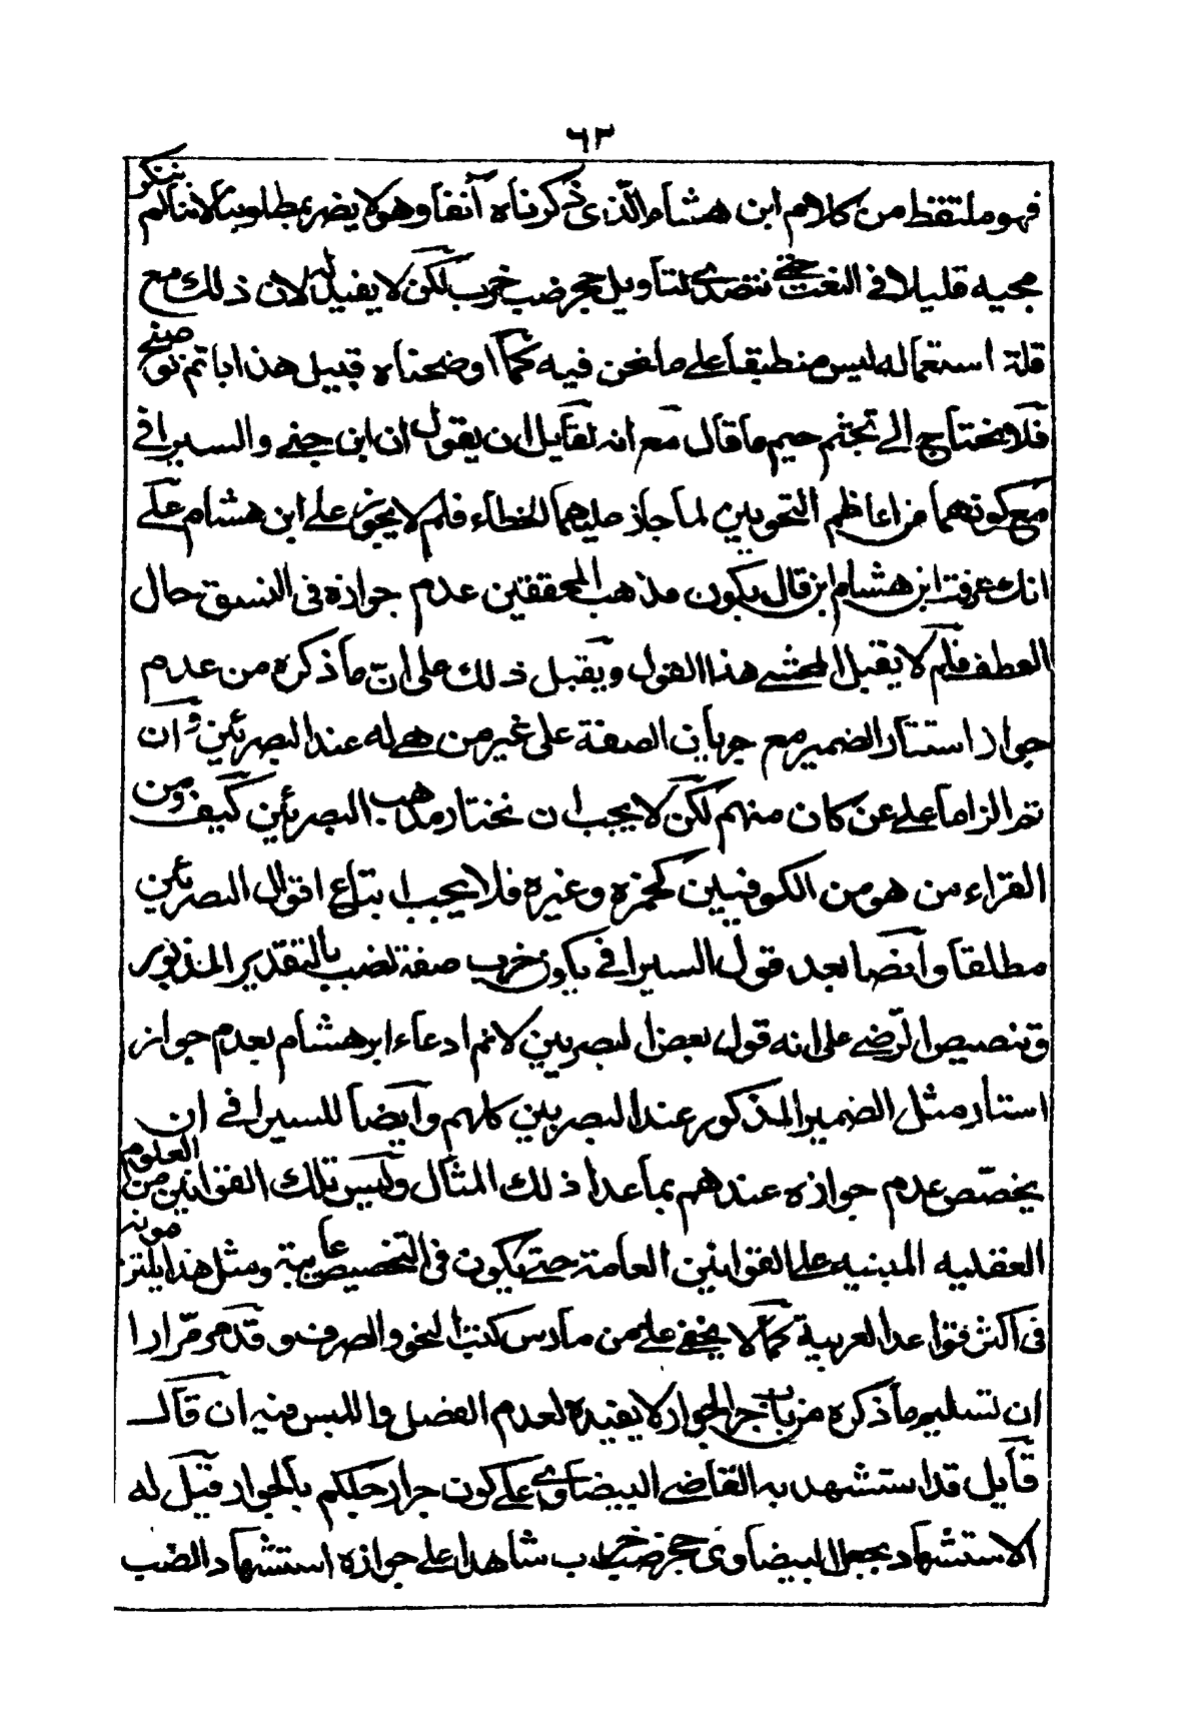 ٦٣
فهو ملتقط من كلام ابن هشام الذى ذكرناه آنفا وهو لا يضر بمطلوبنا لاننا لم ننكر
مجيه قليلا فى النعت حتى نتصدى لتاويل حجر ضب خرب لكن لا يفيد له لان ذلك مع
قلة استعماله ليس منطبقا على ما نحن فيه كما اوضحناه قبيل هذا باتم توضيح
فلا يحتاج الى تجشم ما قال مع انه لقايل ان يقول ان ابن جنى والسيرافى
مع كونهما من اعاظم النحويين لما جاز عليهما الخطاء فلم لا يجوز على ابن هشام على
انك عرفت ابن هشام قال بكون مذهب المحققين عدم جوازه فى النسق حال
العطف فلم لا يقبل المحشى هذا القول ويقبل ذلك على ان ما ذكره من عدم
جواز استتار الضمير مع جريان الصفة على غير من هى له عند البصريين وان
تم الزاما على من كان منهم لكن لا يجب ان نختار مذهب البصريين كيف ومن
القراء من هو من الكوفيين كحمزه وغيره فلا يجب اتباع اقوال البصريين
مطلقا وايضا بعد قول السيرافى بكون خرب صفة لضب بالتقدير المذبور
وتنصيص الرضى على انه قول بعض البصريين لا تم ادعاء ابن هشام بعدم جواز
استتار مثل الضمير المذكور عند البصريين كلهم وايضا للسيرافى ان
يخصّص عدم جوازه عندهم بما عدا ذلك المثال وليس تلك القوانين من العلوم
العقليه المبنيه على القوانين العامة حتى يكون فى التخصيص عايبة ومثل هذا يلتزمونه
فى اكثر قواعد العربية كما لا يخفى على من مارس كتب النحو والصرف وقد مر مرارا
ان تسليم ما ذكره من باب جر الجوار لا يفيده لعدم الفصل واللبس فيه ان قال
قايل قد استشهد به القاضى البيضاوى على كون جر ارجلكم بالجوار قيل له
الاستشهاد بجعل البيضاوى حجر ضب خرب شاهدا على جوازه استشهاد الضب